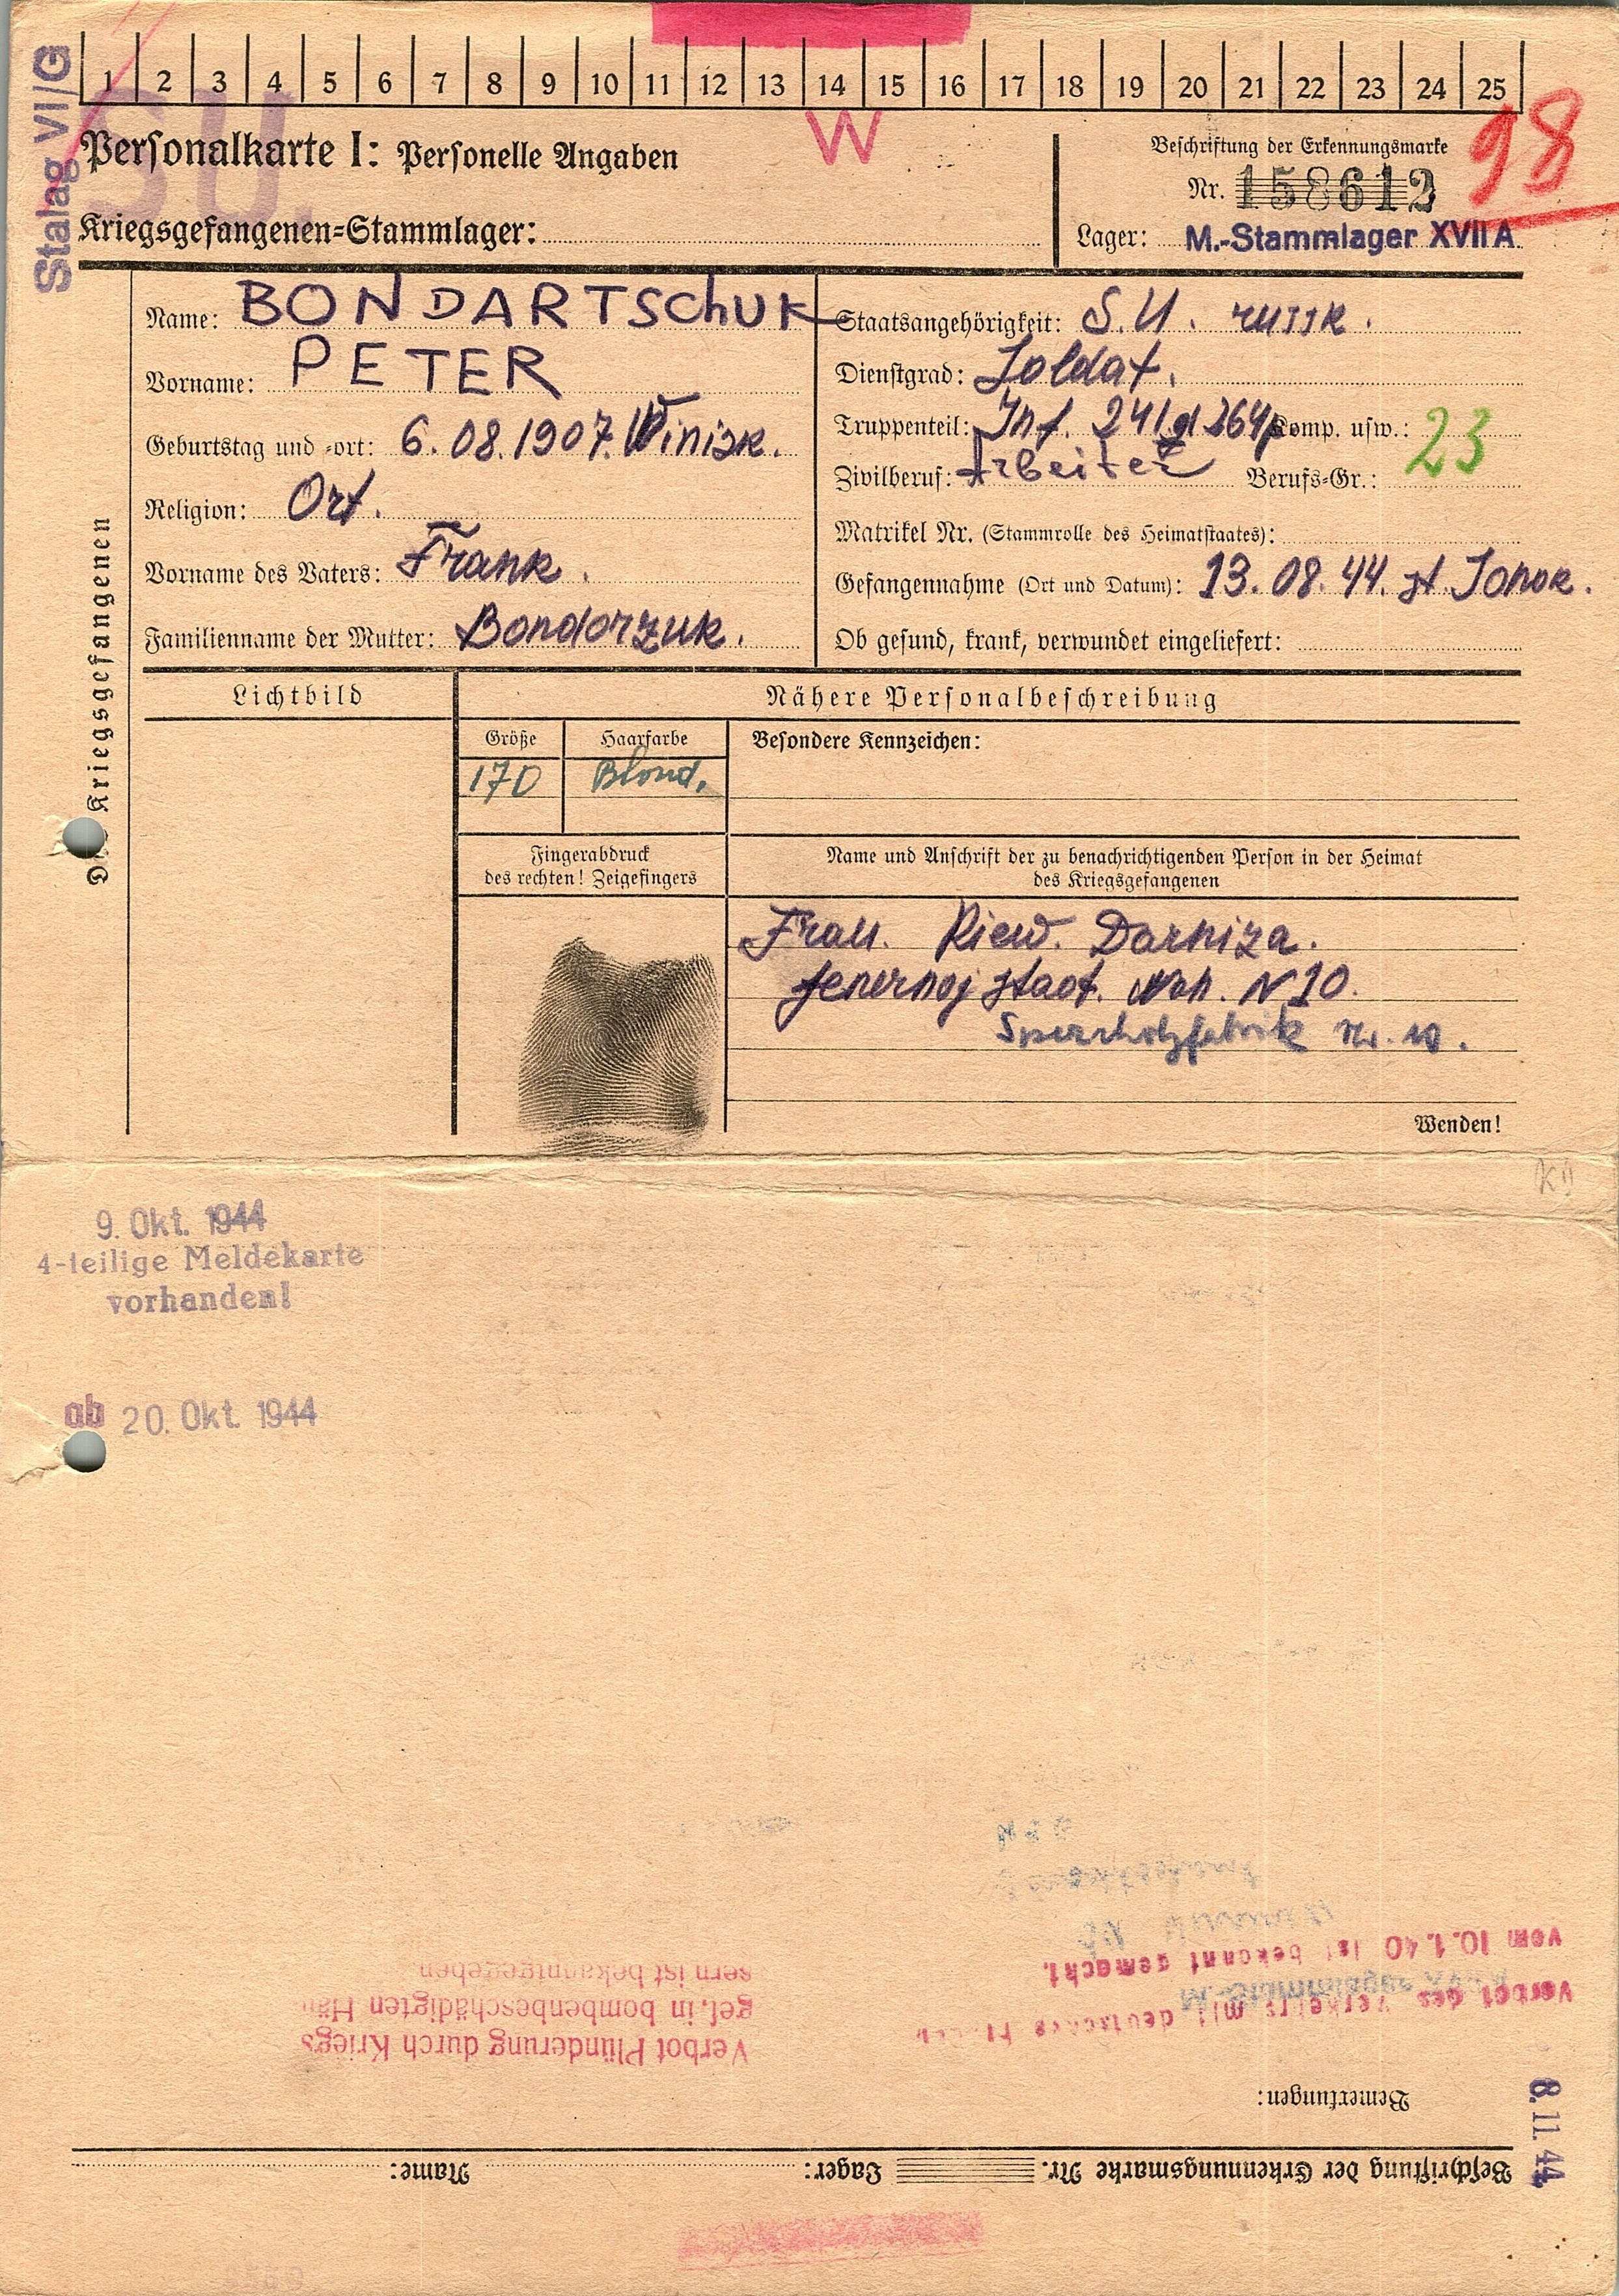 Stalag VI/G
1 2 3 4 5 6 7 8 9 10 11 12 13 14 15 16 17 18 19 20 21 22 23 24 25
SU.
W
98
Personalkarte I: Personelle Angaben
Beschriftung der Erkennungsmarke
Nr. 158612
Kriegsgefangenen-Stammlager:
Lager: M.-Stammlager XVII A
Des Kriegsgefangenen
Name: BONDARTSchUK
Vorname: PETER
Geburtstag und -ort: 6.08.1907. Winisk.
Religion: Ort.
Vorname des Vaters: Frank.
Familienname der Mutter: Bondorzuk.
Staatsangehörigkeit: S.U. russk.
Dienstgrad: Soldat.
Truppenteil: Inf. 241 d 264 p Komp. usw.:
23
Zivilberuf: Arbeiter Berufs-Gr.:
Matrikel Nr. (Stammrolle des Heimatstaates):
Gefangennahme (Ort und Datum): 13.08.44. st. Sonok.
Ob gesund, krank, verwundet eingeliefert:
Lichtbild
Nähere Personalbeschreibung
Größe Haarfarbe Besondere Kennzeichen:
170 Blond.
Fingerabdruck
des rechten! Zeigefingers
Name und Anschrift der zu benachrichtigenden Person in der Heimat
des Kriegsgefangenen
Frau. Kiew. Darniza.
N 10.
Sperrholzfabrik Nr. 10.
Wenden!
9. Okt. 1944
4-teilige Meldekarte
vorhanden!
ab 20. Okt. 1944
Beschriftung der Erkennungsmarke Nr. Lager: Name:
Bemerkungen:
8.11.44
Verbot des Verkehrs mit deutschen
vom 10.1.40 ist bekannt gemacht.
M.-Stammlager
Verbot Plünderung durch Kriegs
gef. in bombenbeschädigten Häu
sern ist bekanntgegeben